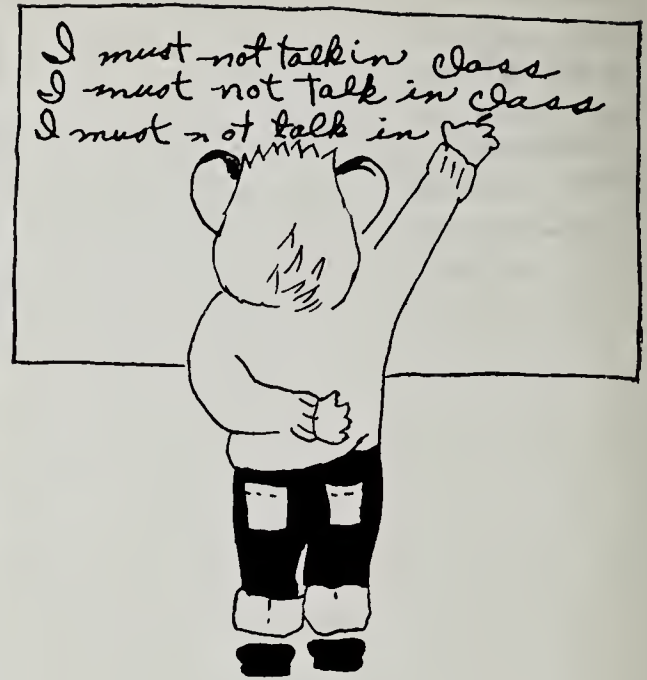 I must not talk in class
I must not talk in class
I must not talk in